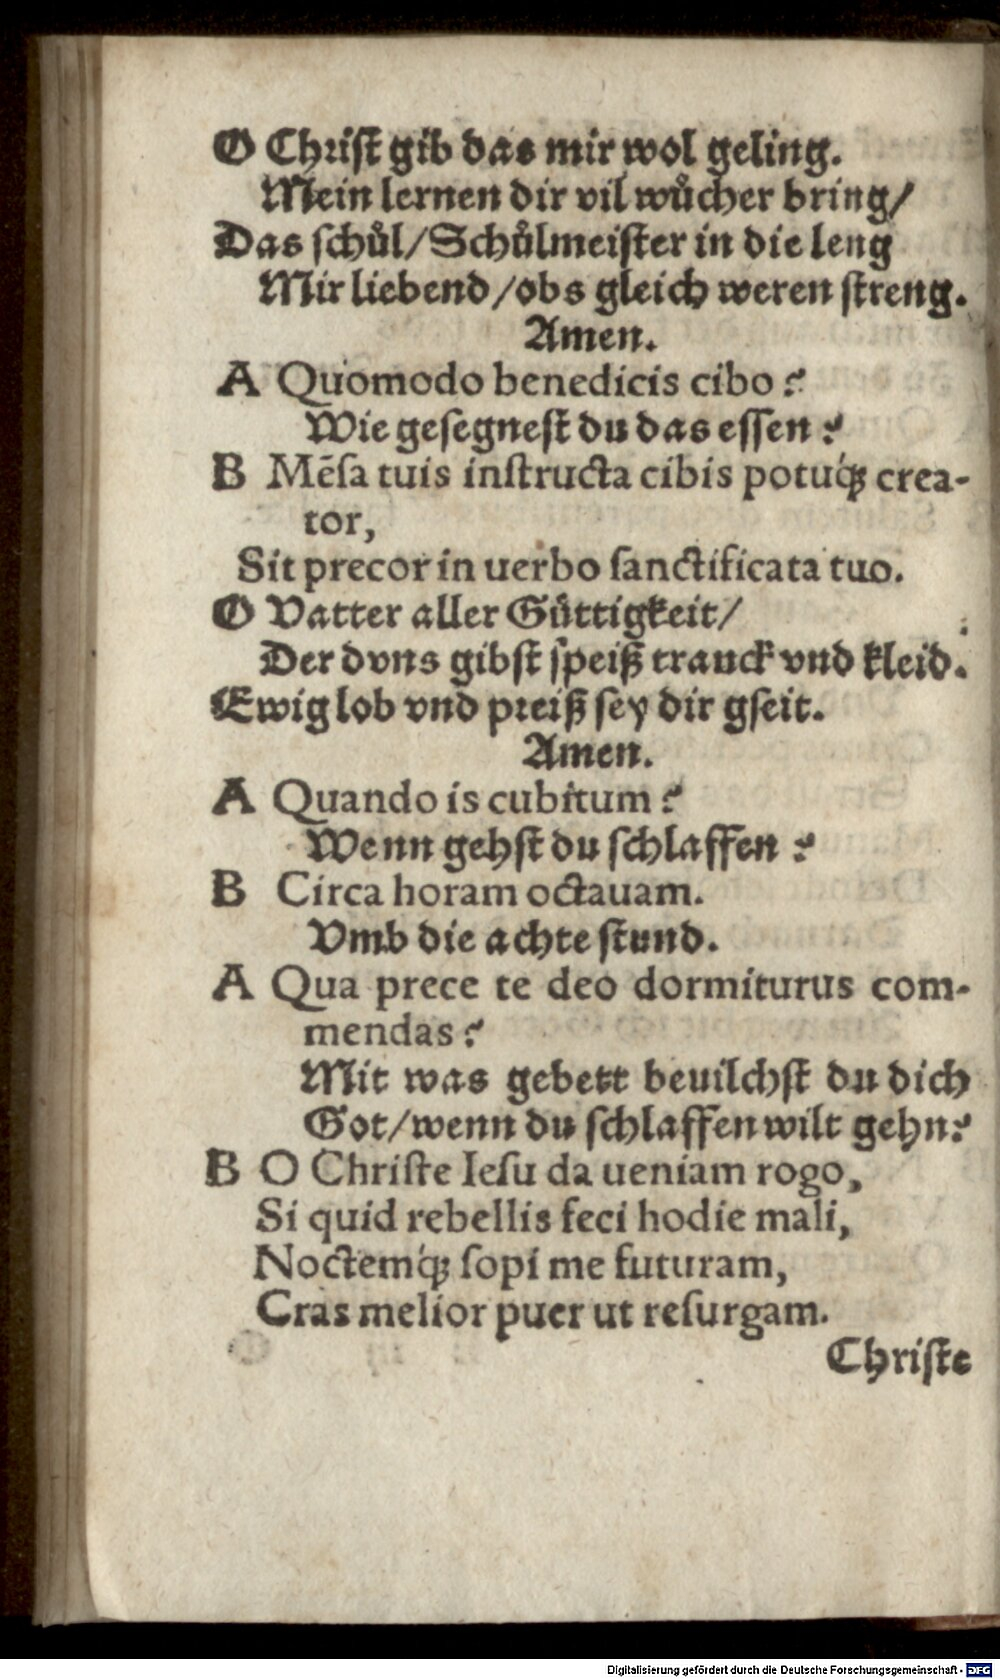 O Chriſt gib das mir wol geling.
Mein lernen dir vil wůcher bring/
Das ſchůl/Schůlmeiſter in die leng
Mir liebend/obs gleich weren ſtreng.
Amen.
A Quomodo benedicis cibo?
Wie geſegneſt du das eſſen?
B Mēſa tuis inſtructa cibis potuq́ꝫ crea-
tor,
Sit precor in uerbo ſanctificata tuo.
O Vatter aller Gůttigkeit/
Der dvns gibſt ſpeiß tranck vnd kleid.
Ewig lob vnd preiß ſey dir gſeit.
Amen.
A Quando is cubitum?
Wenn gehſt du ſchlaffen?
B Circa horam octauam.
Vmb die achte ſtund.
A Qua prece te deo dormiturus com-
mendas?
Mit was gebett beuilchſt du dich
Got/wenn du ſchlaffen wilt gehn?
B O Chriſte Ieſu da ueniam rogo,
Si quid rebellis feci hodie mali,
Noctemq́ꝫ ſopi me futuram,
Cras melior puer ut reſurgam.
Chriſte
Digitalisierung gefördert durch die Deutsche Forschungsgemeinschaft - DFG